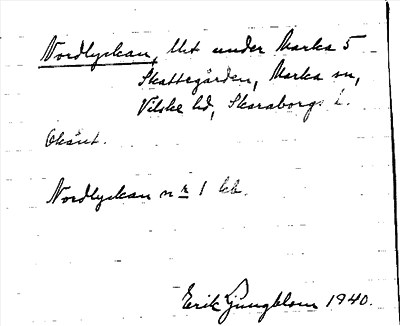 Nordlyckan, lht under Marka 5
Skattegården, Marka sn,
Vilske hd, Skaraborgs l.
Okänt.
Nordlyckan nr 1 kb.
Erik Ljungblom 1940.